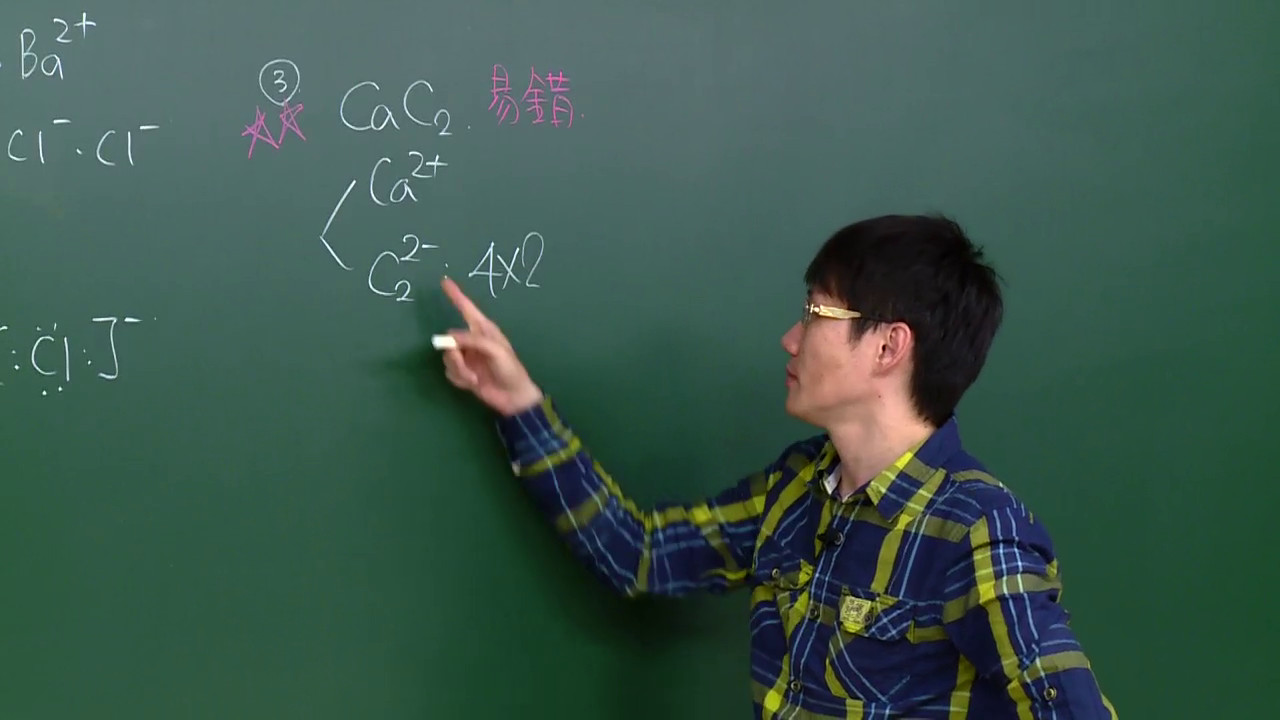 Ba²⁺
Cl⁻ · Cl⁻
[:Cl:]⁻
③ CaC₂. 易錯.
Ca²⁺
C₂²⁻: 4×2